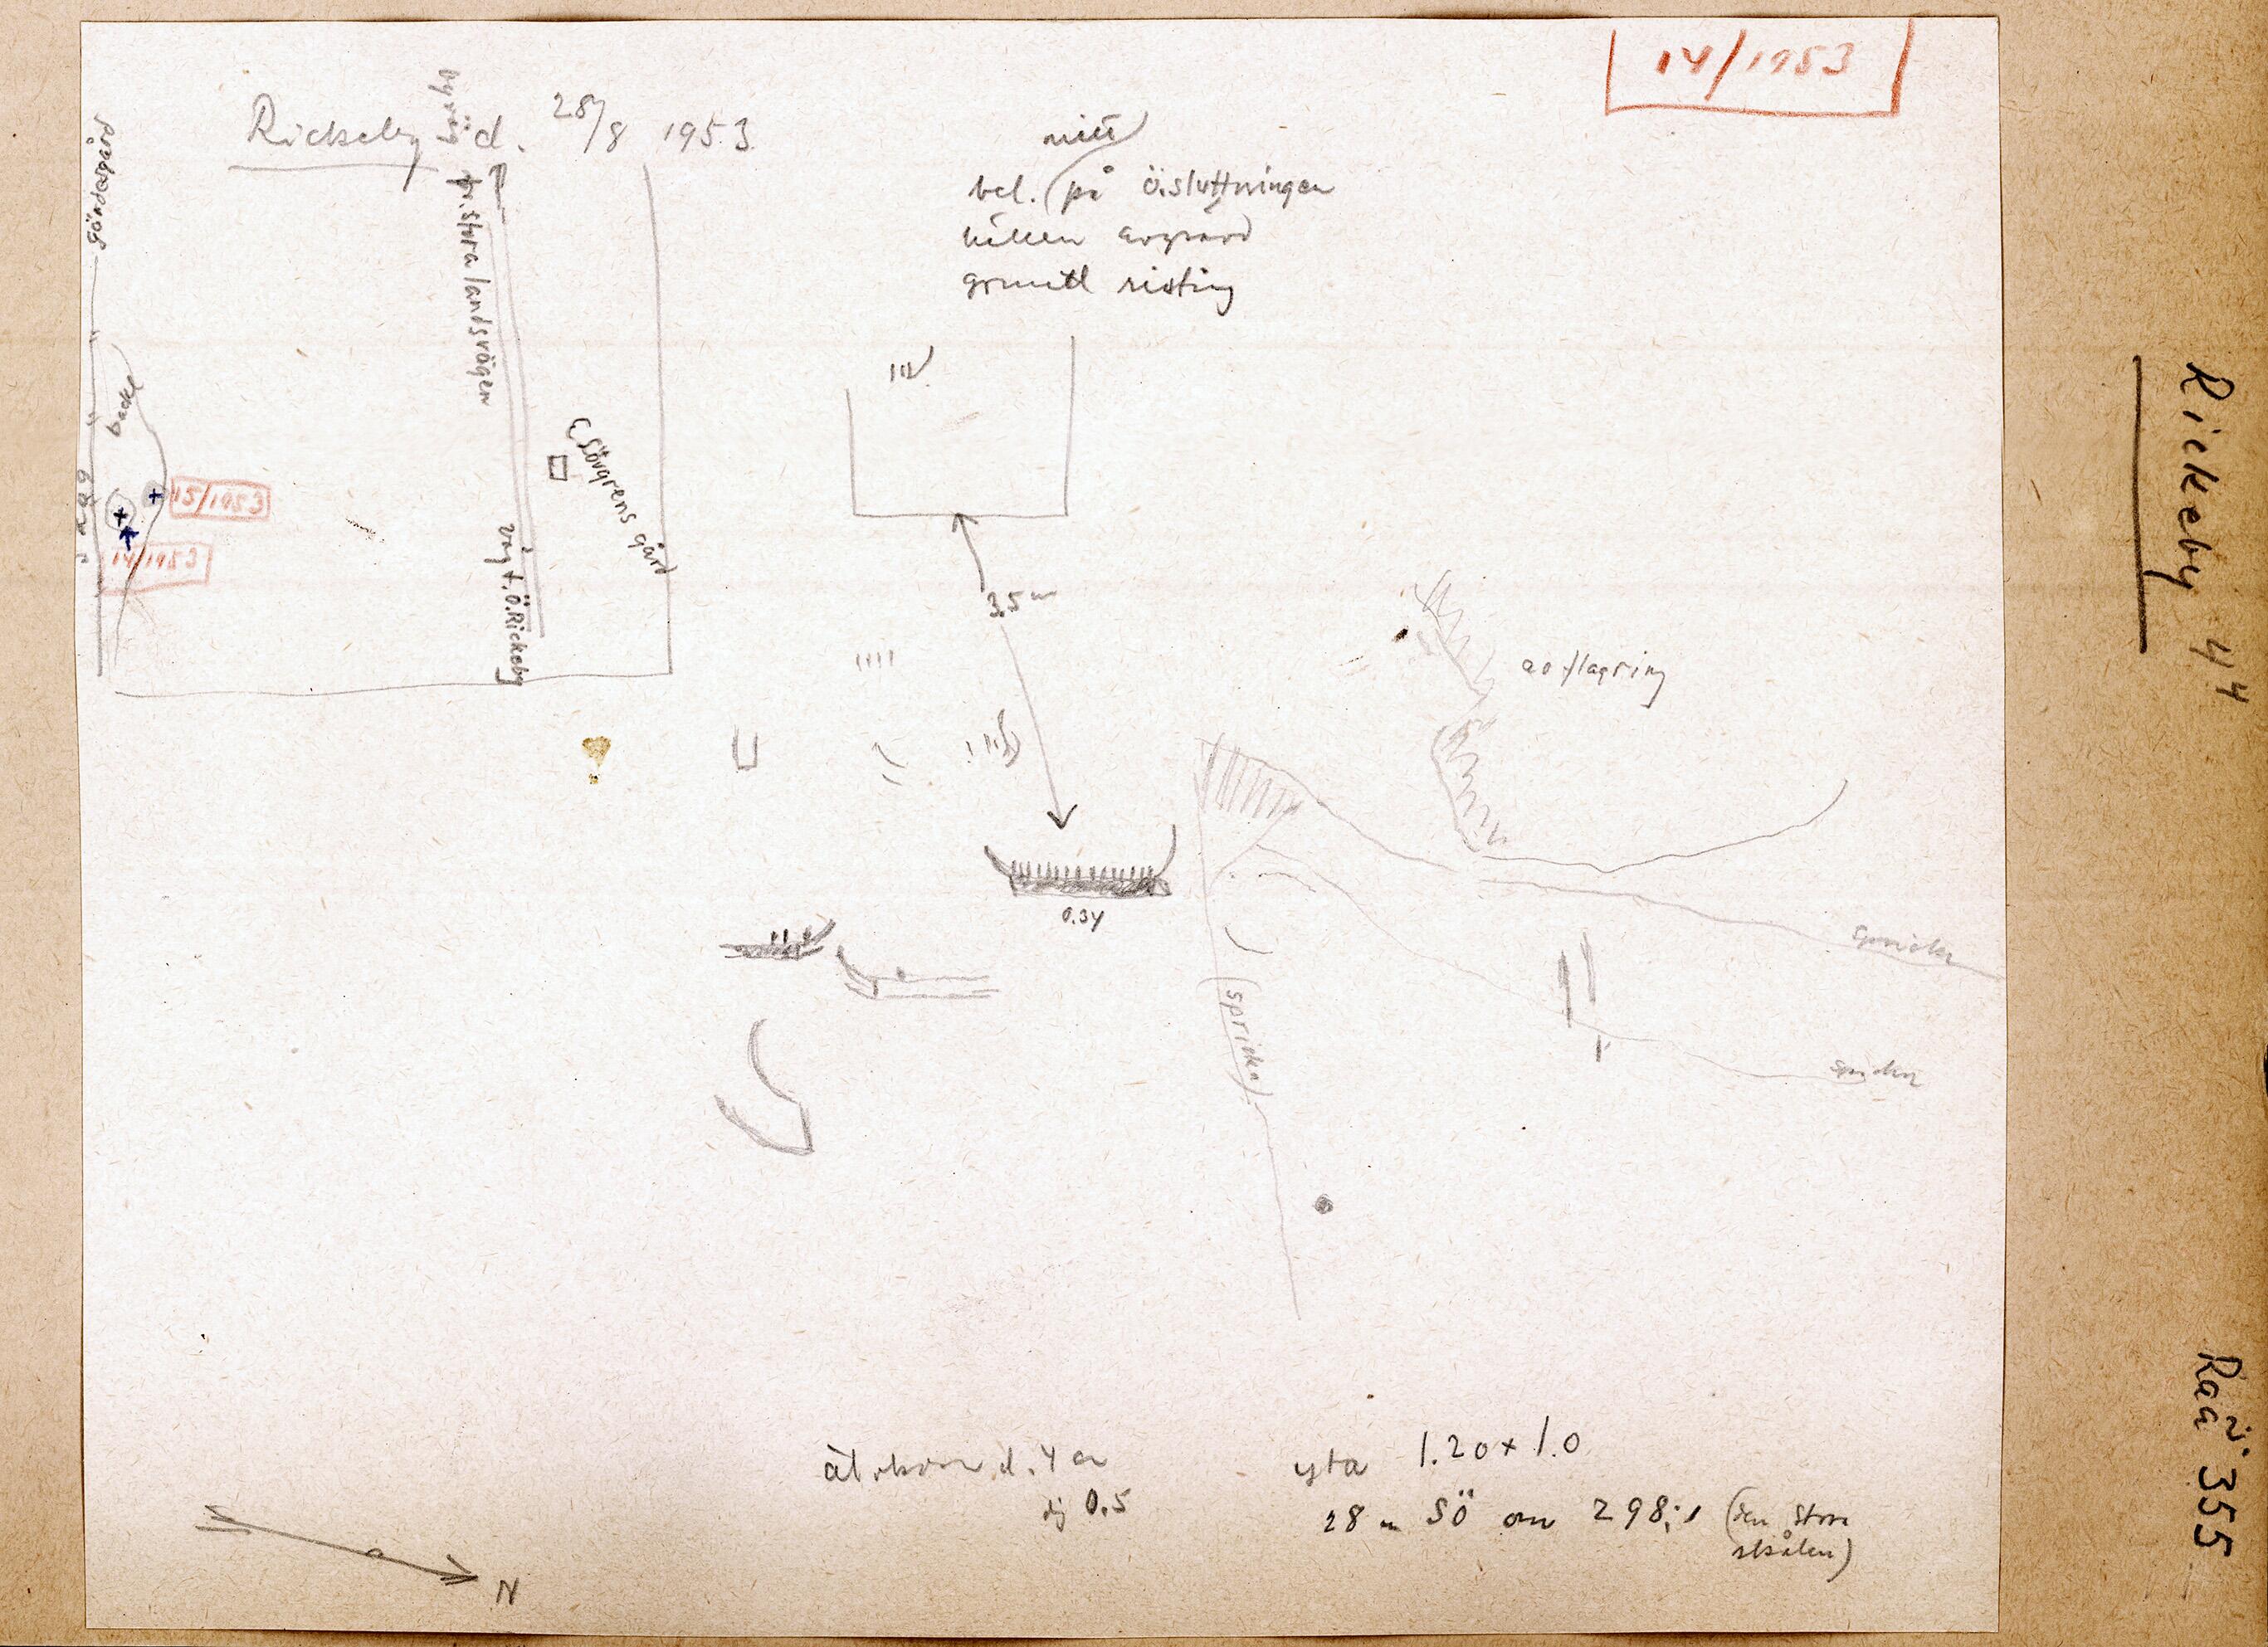 14/1953
Rickeby d. 28/8 1953
byväg
fr. stora landsvägen
gärdesgård
backe
15/1953
14/1953
Lövgrens gård
väg t. Ö. Rickeby
mitt
bel. på ö. sluttningen
hällen
grunt risting
3.5 m
avflagring
0.34
spricka
spricka
(spricka)
d. 4 cm
dj 0.5
yta 1.20 x 1.0
28 m SÖ om 298:1 (den stora
skålen)
N
Rickeby 44
Raä 355